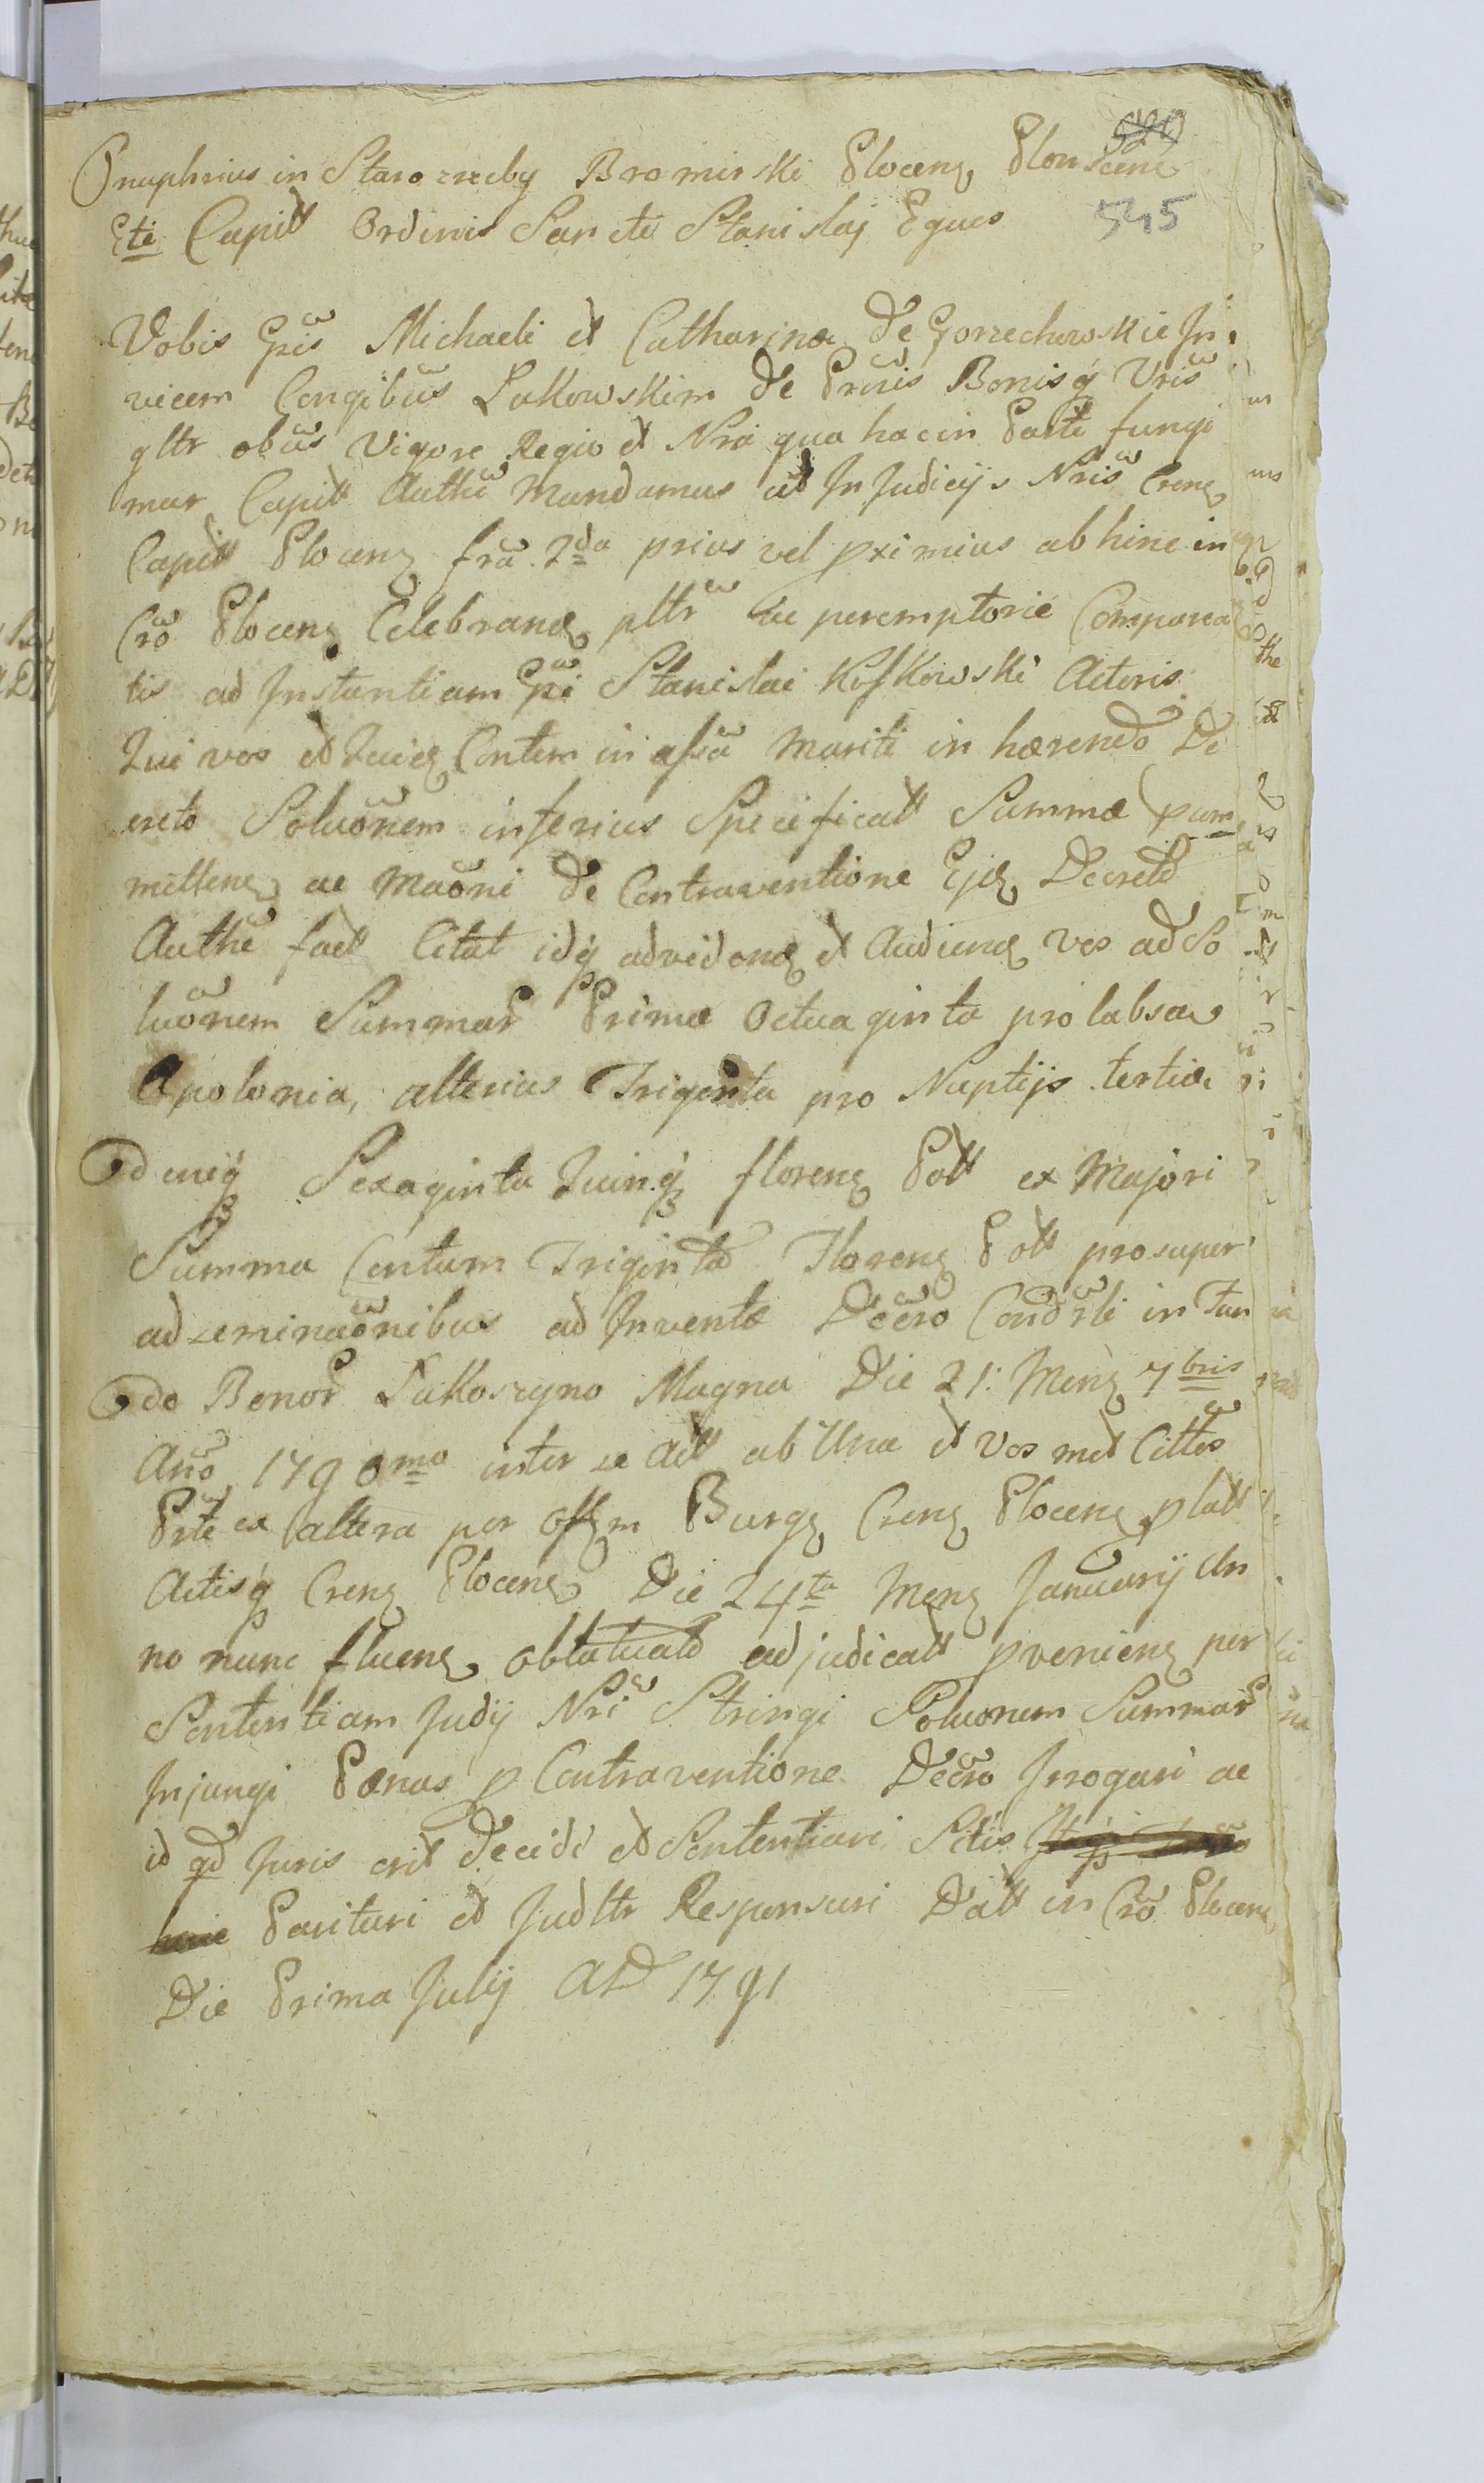 520
Onuphrius in Starozreby Bromirski Plocens Plonscens
Eti Capitt Ordinis Sancti Stanislaj Eques 545
Vobis Gnis Michaeli et Catharinæ de Gorzechowskie In
vicem Congibus Lukowskim de Prnis Bonisq Vris
gltr obus Vigore Regio et Nra qua hac in Parte fungi
mur Capitt Authe Mandamus ut In Judicijs Nris Crens
Capitt Plocens fra 2da prius vel pximius abhinc in
Cro Plocens Celebrand pltr ac peremptorie Comparea
tis ad Instantiam Gni Stanislai Koskowski Actoris
Qui vos et Quidem Contem in assa Mariti in hærendo De
creto Soluonem inferius Specificatt Summæ pum
mittens ac Maoni de Contraventione Ejus Decreto
Authe fact Citat idq advidend et Audiend vos ad So
luonem Summar Primæ Octuaginta pro labsa
Apolonia, alterius Triginta pro Nuptijs tertiæ
deniq Sexaginta Quinq florens Poll ex Majori
Summa Centum Triginta Florens Poll pro super
ad eminaonibus ad Inventæ Decro Condrli in Fun
do Bonor Lukoszyno Magna Die 21: Mens 7bris
Ano 1790mo inter se Act ab Una et Vos met Cittos
Prte ex altera per Offm Burg Crens Plocens platt
Actisq Crens Plocens Die 24ta Mens Januarij An
no nunc fluens oblatuato adjudicatt pveniens per
Sententiam Judij Nri Stringi Soluonem Summar
Injungi Pænas p Contraventione Decro Irrogari ac
id qd Juris erit Decidi et Sententiari Sitis
Parituri et Judltr Responsuri Datt in Cro Plocens
Die Prima Julij AD 1791